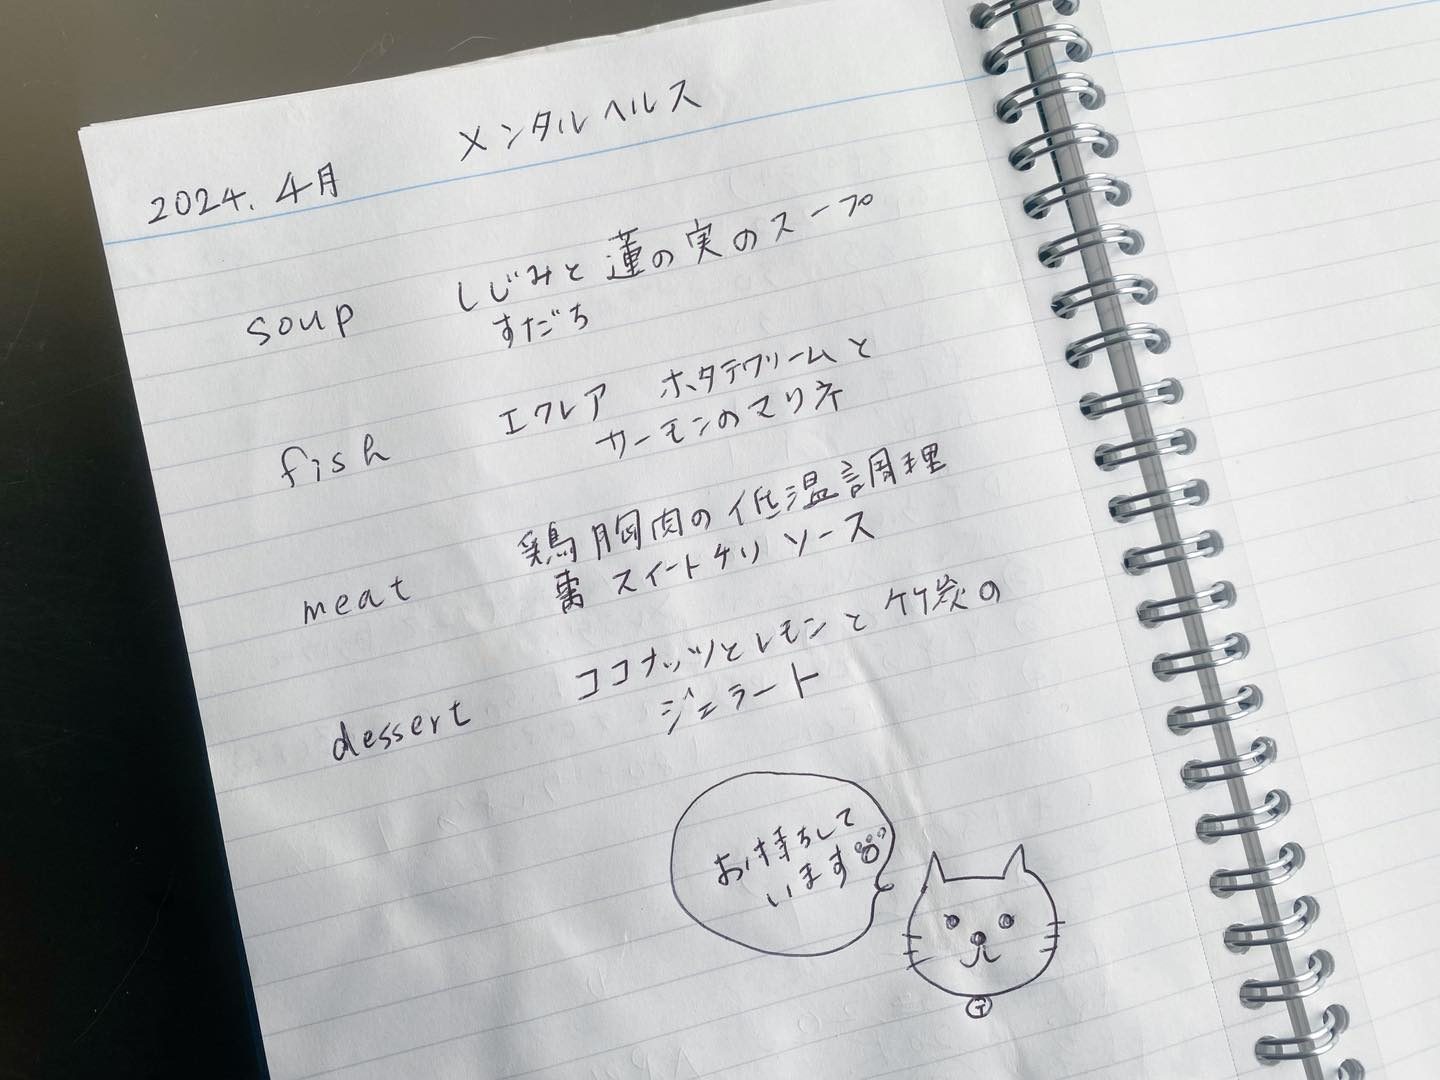 メンタルヘルス
2024.4月
soup しじみと蓮の実のスープ
すだち
fish エクレア ホタテクリームと
サーモンのマリネ
meat 鶏胸肉の低温調理
棗 スイートチリソース
dessert ココナッツとレモンと竹炭の
ジェラート
お待ちして
います